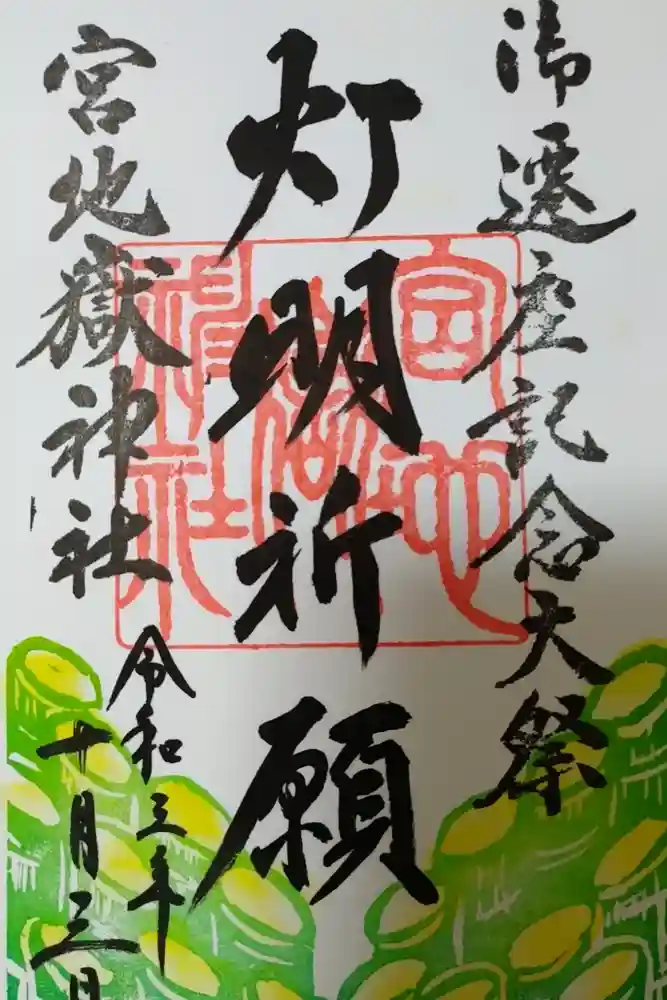 御遷座記念大祭
灯明祈願
宮地嶽神社
令和三年
十月三日
宮地嶽神社